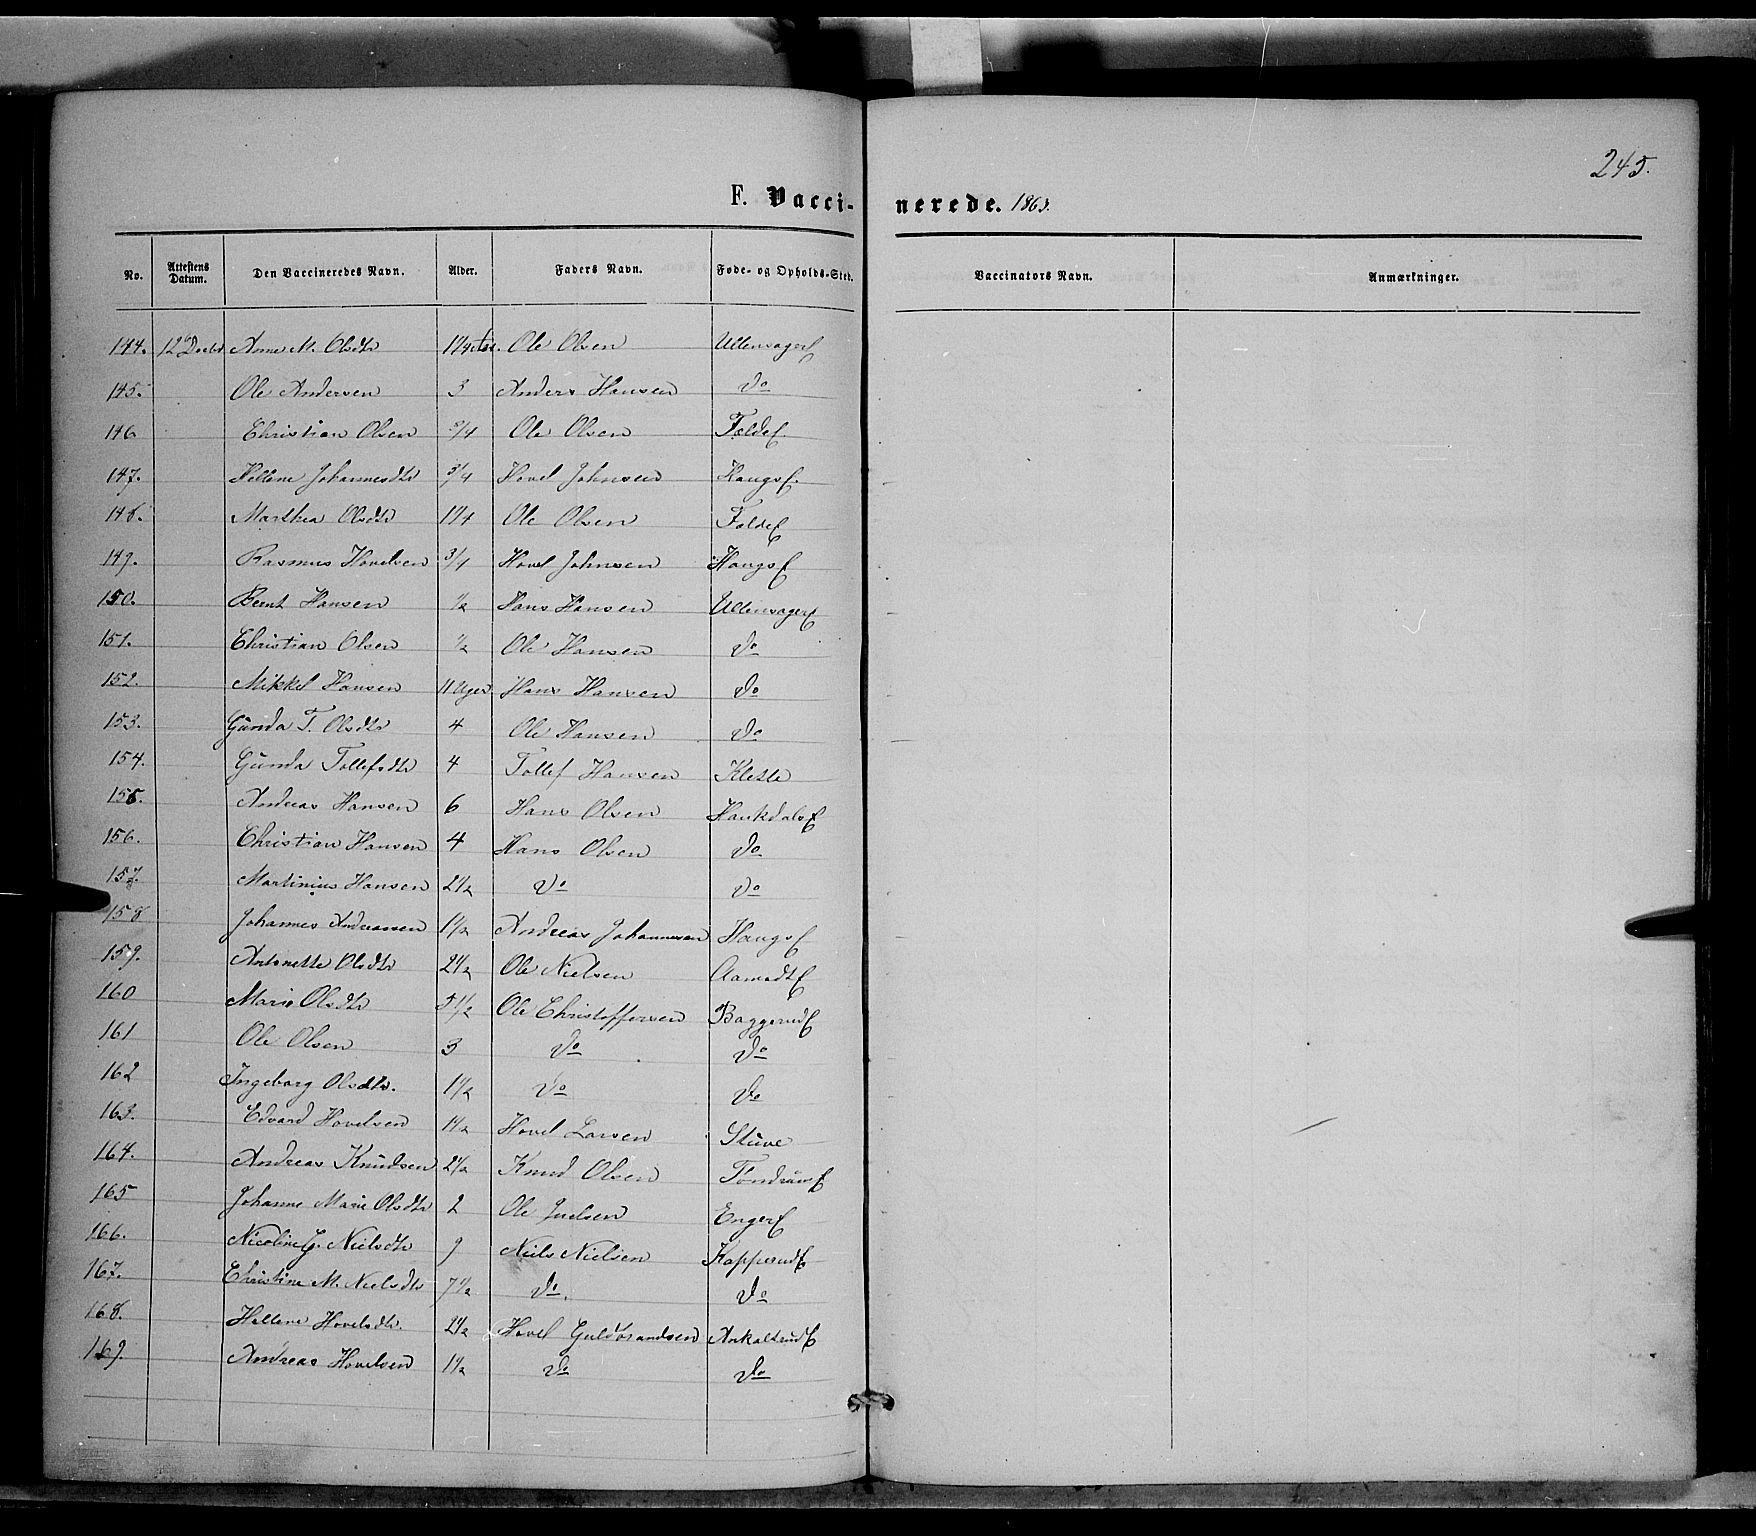 245.
F. Vacci- nerede. 1863.
No. Attestens Datum. Den Vaccineredes Navn. Alder. Faders Navn. Føde- og Opholds-Sted. Vaccinators Navn. Anmærkninger.
144. 12 Decbr Anne M. Olsdtr 1 1/4 Ole Olsen Ullensager
145. Ole Andersen 3 Anders Hansen Do
146 Christian Olsen 3/4 Ole Olsen Folde
147. Hellene Johannesdtr 3/4 Hovel Johnsen Haugs
148. Marthea Olsdtr 1 1/4 Ole Olsen Folde
149. Rasmus Hovelsen 3/4 Hovel Johnsen Haugs
150. Bernt Hansen 1/2 Hans Hansen Ullensager
151. Christian Olsen 1/2 Ole Hansen Do
152. Mikkel Hansen 11 Uger Hans Hansen Do
153. Gunda T. Olsdtr 4 Ole Hansen Do
154. Gunda Tollefsdtr 4 Tollef Hansen Klette
155. Andreas Hansen 6 Hans Olsen Haukdals
156. Christian Hansen 4 Hans Olsen Do
157. Martinius Hansen 2 1/2 Do Do
158 Johannes Andreassen 1 1/2 Andreas Johannesen Haugs
159. Antonette Olsdtr 2 1/2 Ole Nielsen Aamodt
160 Marie Olsdtr 5 1/2 Ole Christoffersen Baggerud
161 Ole Olsen 3 Do Do
162 Ingeborg Olsdtr. 1 1/2 Do Do
163. Edvard Hovelsen 1 1/2 Hovel Larsen Stuve
164. Andreas Knudsen 2 1/2 Knud Olsen
165 Johanne Marie Olsdtr 2 Ole Juelsen Enger
166. Nicoline G. Nielsdtr 9 Niels Nielsen Kapperud
167. Christine M. Nielsdtr 7 1/2 Do. Do
168. Hellene Hovelsdtr. 2 1/2 Hovel Guldbrandsen Ankalterud
169. Andreas Hovelsen 1 1/2 Do Do